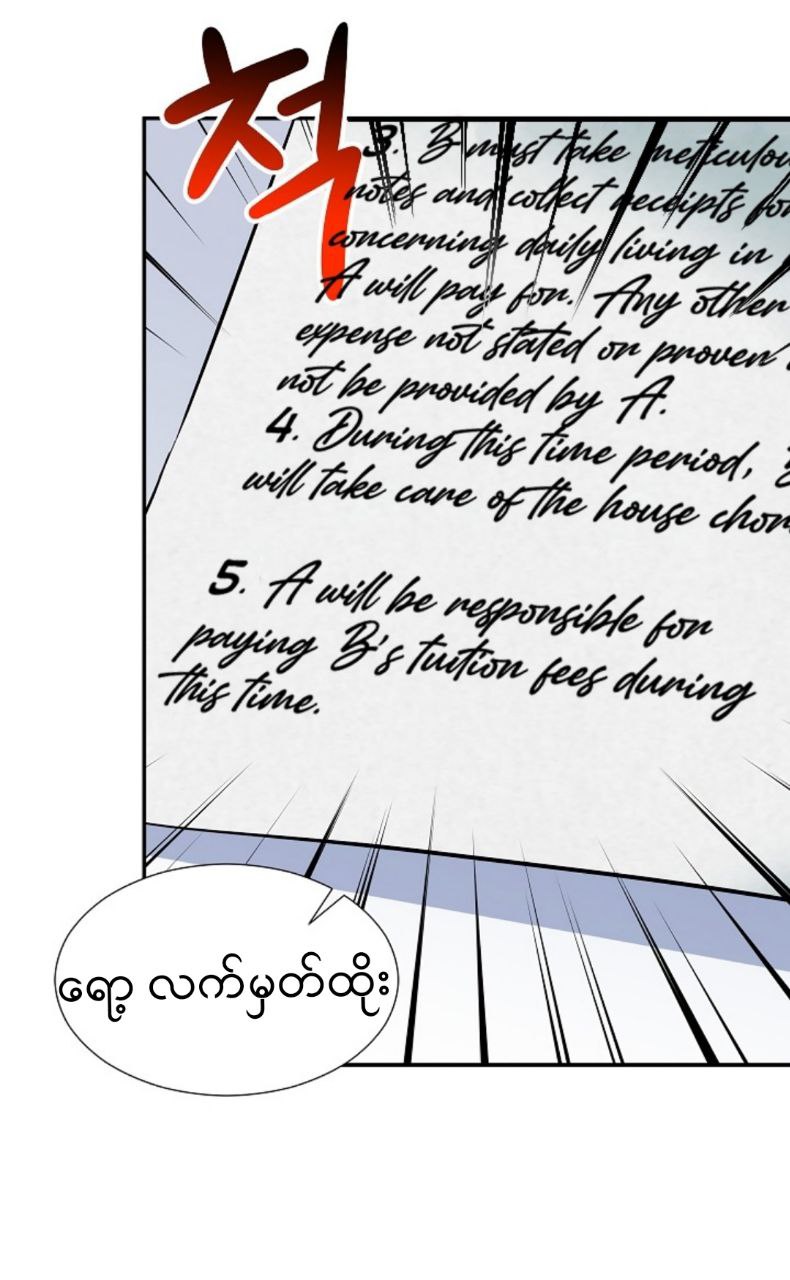 척
3. B must take meticulou
notes and collect receipts for
concerning daily living in
A will pay for. Any other
expense not stated or proven
not be provided by A.
4. During this time period, B
will take care of the house chor
5. A will be responsible for
paying B's tuition fees during
this time.
ရော့ လက်မှတ်ထိုး